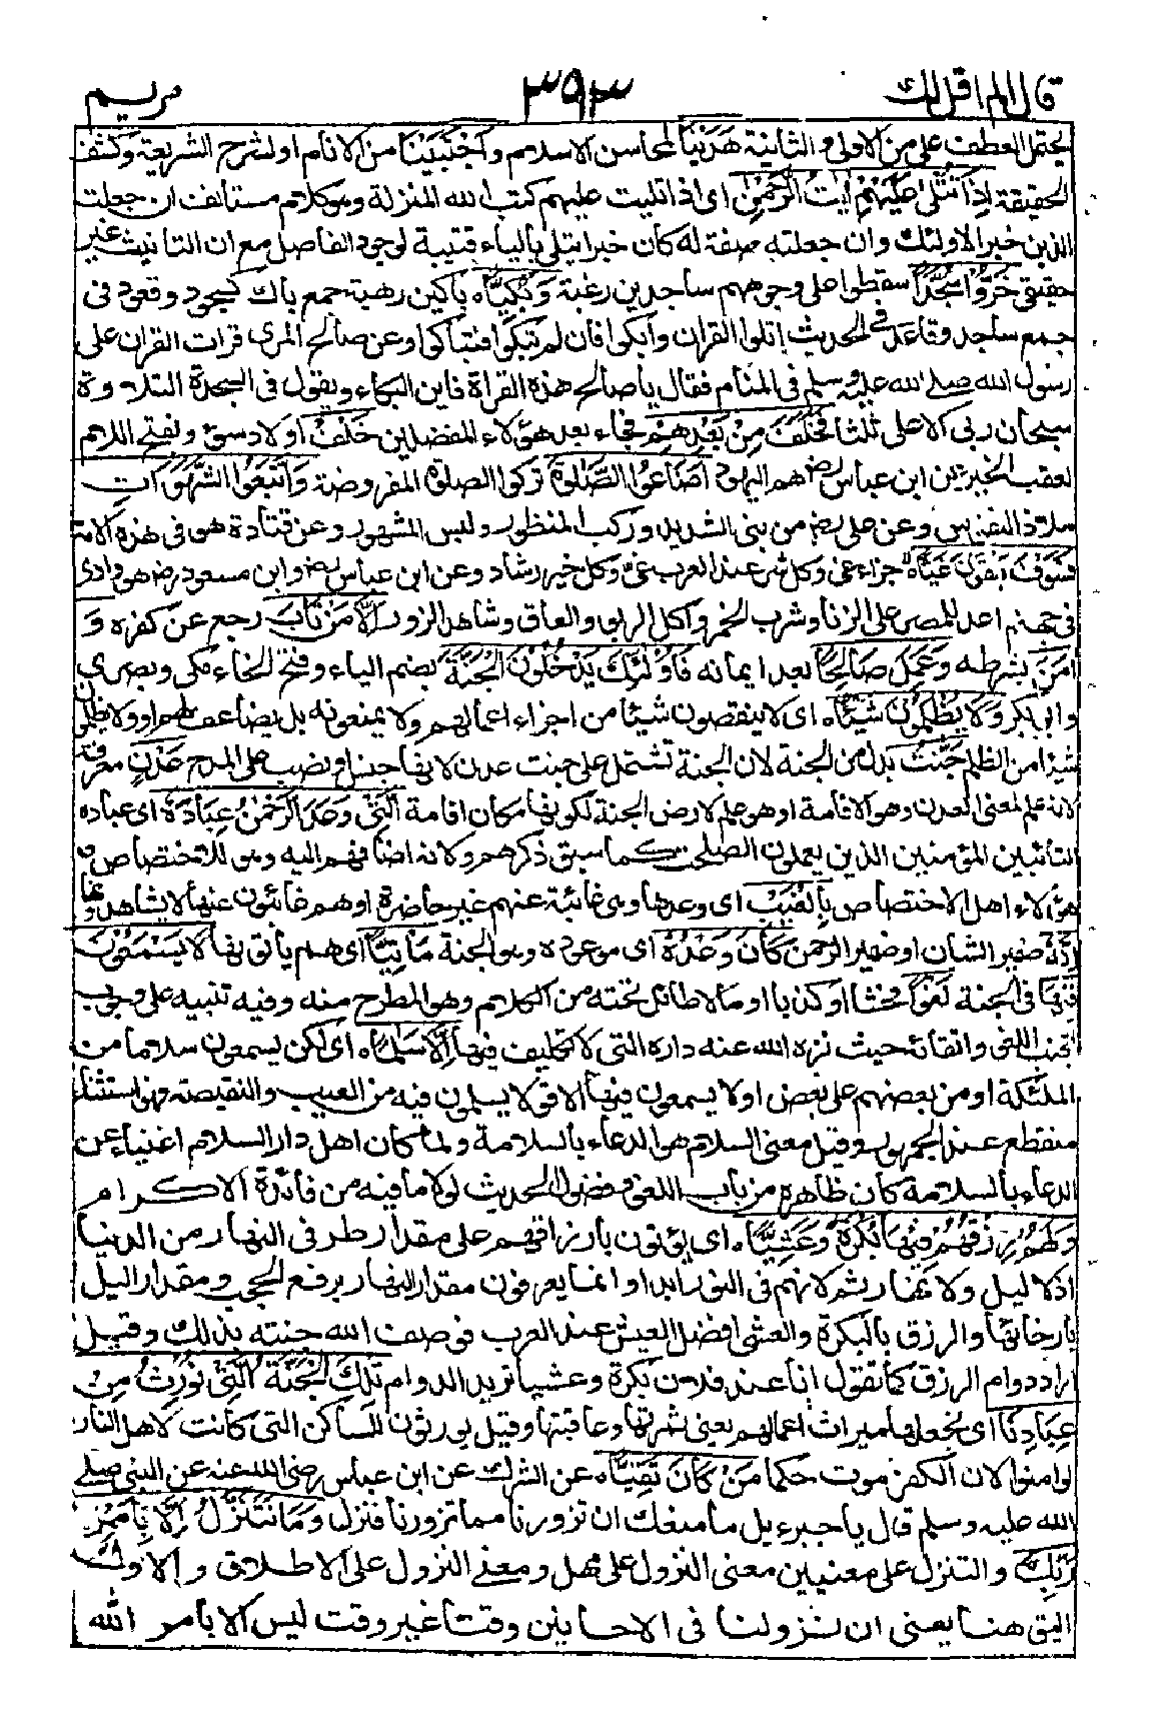 قال الم اقل لك ٣٩٣ مريم
يحتمل العطف على من الاولى و الثانية هَدَيْنَا لمحاسن الاسلام وَاجْتَبَيْنَا من الانام او لشرح الشريعة وكشف
الحقيقة اِذَا تُتْلٰى عَلَيْهِمْ اٰيٰتُ الرَّحْمٰنِ اى اذا تليت عليهم كتب الله المنزلة وهو كلام مستانف ان جعلت
الذين خبر الاولئك وان جعلته صفة له كان خبرا يتلى بالياء قتيبة لوجود الفاصل مع ان التانيث غير
حقيقى خَرُّوْا سُجَّدًا سقطوا على وجوههم ساجدين رغبة وَّبُكِيًّا ۝ باكين رهبة جمع باك كسجود وقعود فى
جمع ساجد وقاعد فى الحديث اتلوا القران وابكوا فان لم تبكوا فتباكوا وعن صالح المرى قرات القران على
رسول الله صلے الله عليه وسلم فى المنام فقال يا صالح هذه القراة فاين البكاء ويقول فى السجدة التلاوة
سبحان ربى الاعلى ثلثا فَخَلَفَ مِنْۢ بَعْدِهِمْ فجاء بعد هؤلاء المفضلين خَلْفٌ اولاد سوء وبفتح اللام
لعقب الخير عن ابن عباس رضـ هم اليهود اَضَاعُوا الصَّلٰوةَ تركوا الصلوة المفروضة وَاتَّبَعُوا الشَّهَوٰتِ
ملاذ النفوس وعن على رضـ من بنى الشديد وركب المنظور ولبس المشهور وعن قتادة هو فى هذه الامة
فَسَوْفَ يَلْقَوْنَ غَيًّا ۝ جزاء غى وكل شر عند العرب غى وكل خير رشاد وعن ابن عباس رضـ وابن مسعود رضـ هو وادى
فى جهنم اعد للمصر على الزنا وشرب الخمر واكل الربو والعاق وشاهد الزور اِلَّا مَنْ تَابَ رجع عن كفره وَ
اٰمَنَ بشرطه وَعَمِلَ صَالِحًا بعد ايمانه فَاُولٰٓئِكَ يَدْخُلُوْنَ الْجَنَّةَ بضم الياء وفتح الخاء مكى وبصرى
وابو بكر وَلَا يُظْلَمُوْنَ شَيْـًٔا ۝ اى لا ينقصون شيئا من اجزاء اعمالهم ولا يمنعونه بل يضاعف لهم او ولا يظلمون
شيئا من الظلم جَنّٰتِ بدل من الجنة لان الجنة تشتمل على جنت عدن لانها جنس او نصب على المدح عَدْنٍ معرفة
لانه علم لمعنى العدن وهو الاقامة او هو علم لارض الجنة لكونها مكان اقامة الَّتِىْ وَعَدَ الرَّحْمٰنُ عِبَادَهٗ اى عباده
التائبين المؤمنين الذين يعملون الصلحت كما سبق ذكرهم ولانه اضافهم اليه وهو للاختصاص و
هؤلاء اهل الاختصاص بِالْغَيْبِ اى وعدها وهى غائبة عنهم غير حاضرة او هم غائبون عنها لا يشاهدونها
اِنَّهٗ ضمير الشان او ضمير الرحمن كَانَ وَعْدُهٗ اى موعوده وهو الجنة مَاْتِيًّا اى هم ياتونها لَا يَسْمَعُوْنَ
فِيْهَا فى الجنة لَغْوًا فحشا او كذبا او ما لا طائل تحته من الكلام وهو المطرح منه وفيه تنبيه على وجوب
تجنب اللغو واتقائه حيث نزه الله عنه داره التى لا تكليف فيها اِلَّا سَلٰمًا ۝ اى لكن يسمعون سلاما من
الملئكة او من بعضهم على بعض او لا يسمعون فيها الا قولا يسلمون فيه من العيب والنقيصة فهو استثناء
منقطع عند الجمهور وقيل معنى السلام هو الدعاء بالسلامة ولما كان اهل دار السلام اغنياء عن
الدعاء بالسلامة كان ظاهره من باب اللغو وفضول الحديث لولا ما فيه من فائدة الاكرام
وَلَهُمْ رِزْقُهُمْ فِيْهَا بُكْرَةً وَّعَشِيًّا ۝ اى يؤتون بارزاقهم على مقدار طرفى النهار من الدنيا
اذ لا ليل ولا نهار ثم لانهم فى النور ابدا وانما يعرفون مقدار النهار برفع الحجب ومقدار اليل
بارخائها والرزق بالبكرة والعشى افضل العيش عند العرب فوصف الله جنته بذلك وقيل
اراد دوام الرزق كما تقول انا عند فلان بكرة وعشيا تريد الدوام تِلْكَ الْجَنَّةُ الَّتِىْ نُوْرِثُ مِنْ
عِبَادِنَا اى نجعلها ميراث اعمالهم يعنى ثمرتها وعاقبتها وقيل يورثون المساكن التى كانت لاهل النار
لو امنوا لان الكفر موت حكما مَنْ كَانَ تَقِيًّا ۝ عن الشرك عن ابن عباس رضى الله عنه عن النبى صلے
الله عليه وسلم قال يا جبرءيل ما منعك ان تزورنا مما تزورنا فنزل وَمَا نَتَنَزَّلُ اِلَّا بِاَمْرِ
رَبِّكَ والتنزل على معنيين معنى النزول على مهل ومعنے النزول على الاطلاق والاول
اليق هنا يعنى ان نزولنا فى الاحايين وقتا غير وقت ليس الا بامر الله